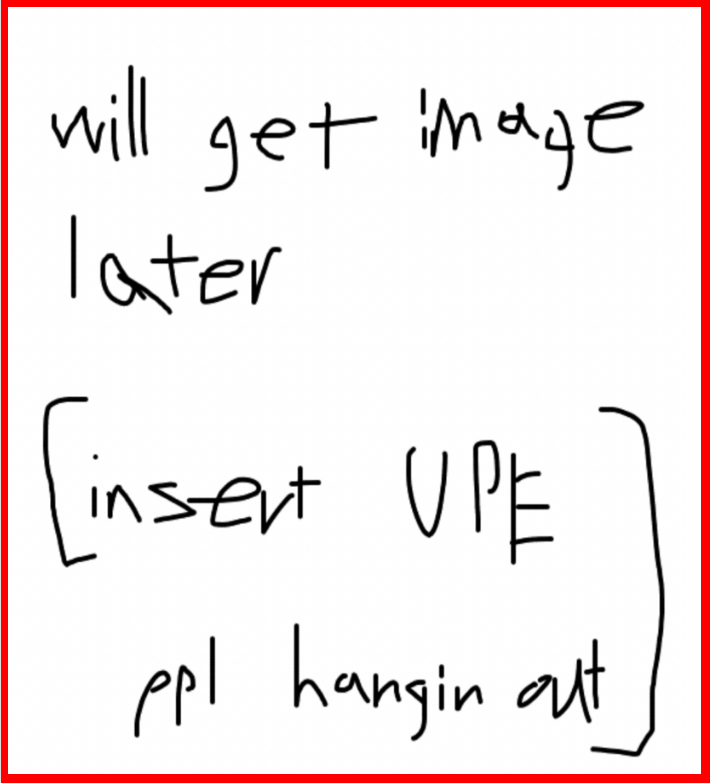 will get image
later
[insert UPE
ppl hangin out]